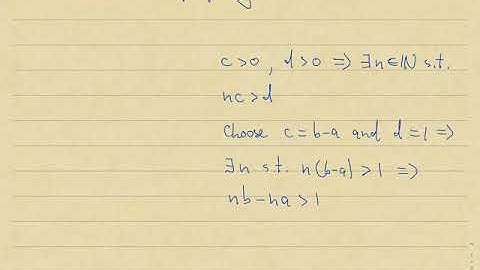 c>0, d>0 => ∃n∈ℕ s.t.
nc>d
Choose c=b-a and d=1 =>
∃n s.t. n(b-a)>1 =>
nb-na>1